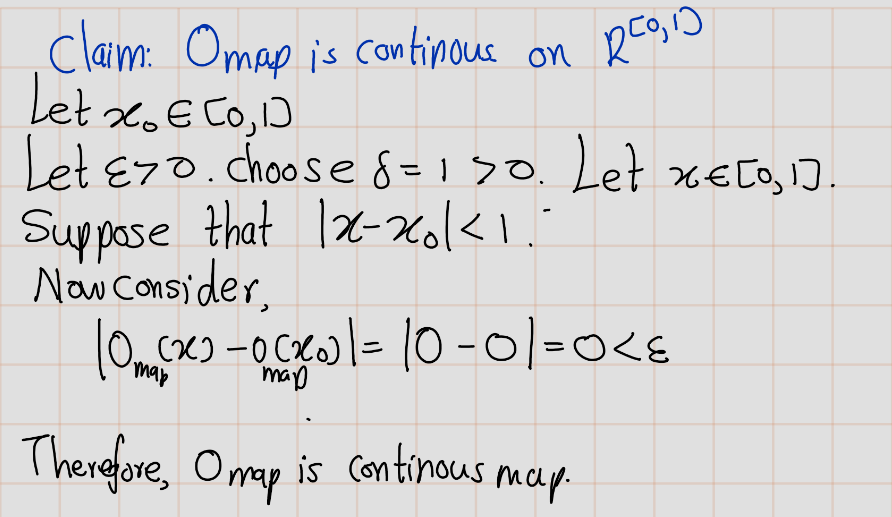 Claim: O map is continous on R^[0,1]
Let x₀ ∈ [0,1]
Let ε>0. choose δ = 1 >0. Let x∈[0,1].
Suppose that |x-x₀|< 1.
Now consider,
|O_map(x) - O_map(x₀)| = |0 - 0| = 0 < ε
Therefore, O map is continous map.